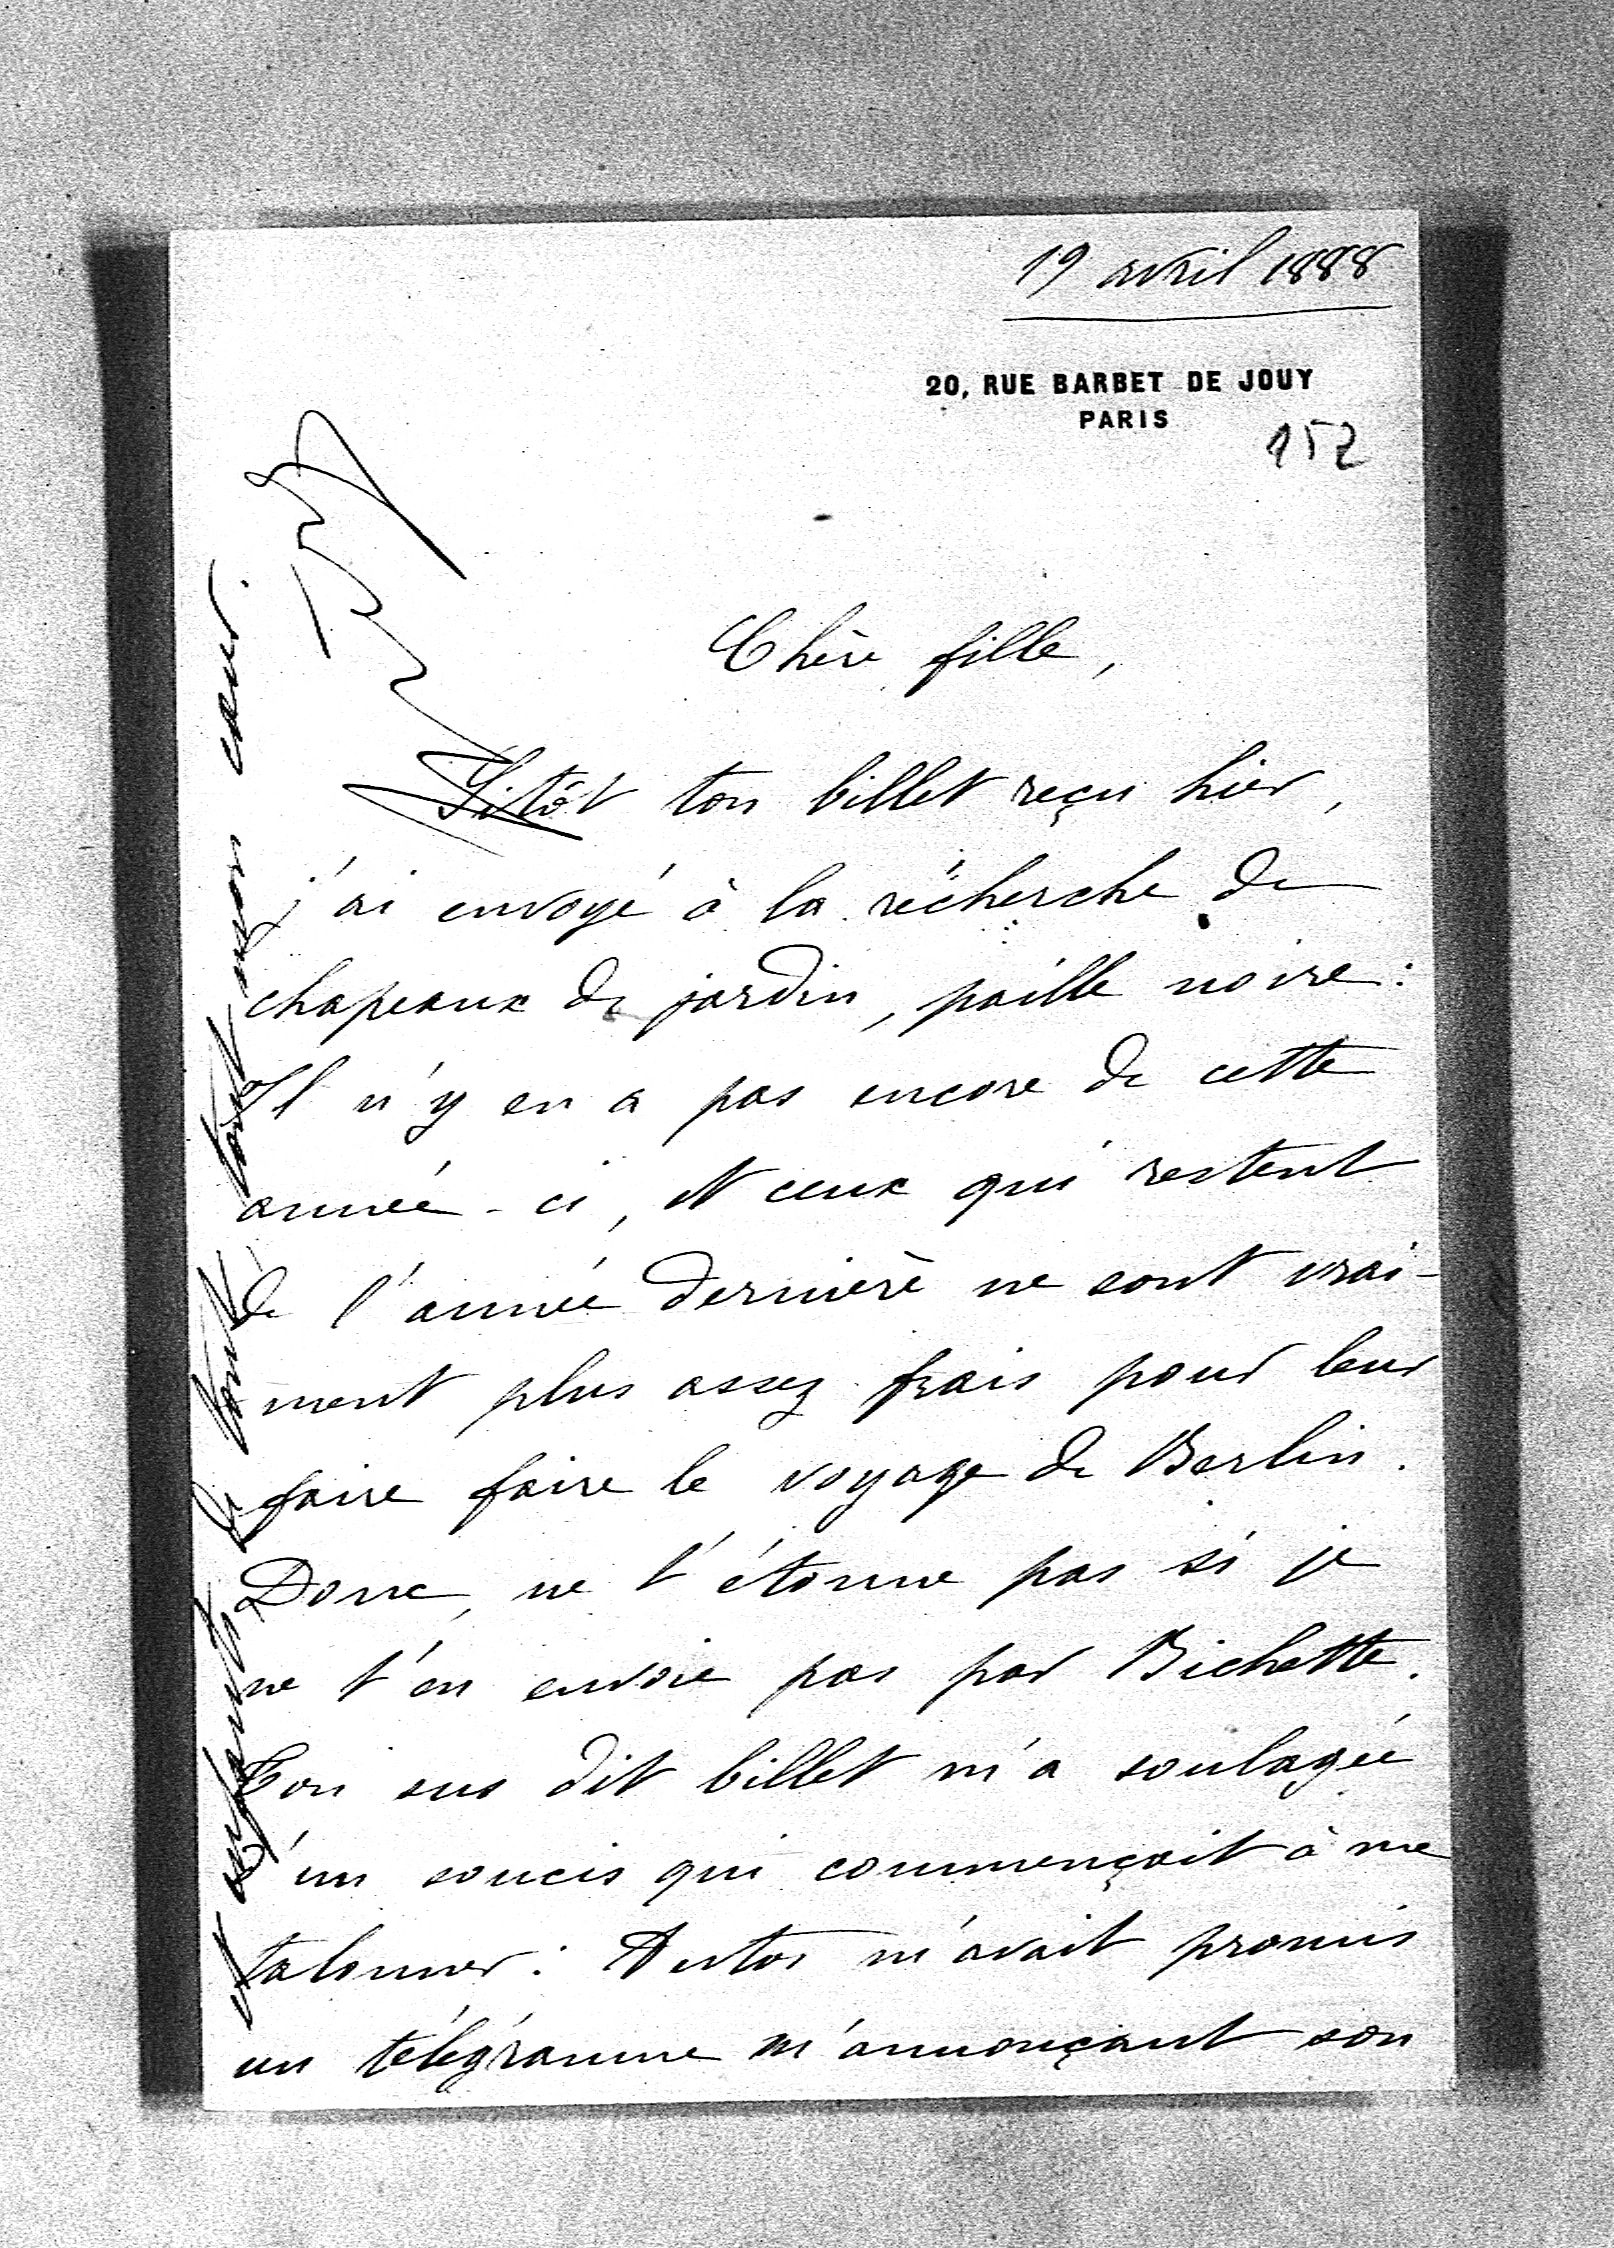 19 avril 1888
20, RUE BARBET DE JOUY
PARIS
152
Chère fille,
Sitôt ton billet reçu hier,
j'ai envoyé à la récherche de
chapeaux de jardin, paille noire:
Il n'y en a pas encore de cette
année-ci, et ceux qui restent
de l'année dernière ne sont vrai-
ment plus assez frais pour leur
faire faire le voyage de Berlin.
Donc, ne t'étonne pas si je
ne t'en envoie pas par Bichette.
Ton sus dit billet m'a soulagée
d'un soucis qui commençait à me
talonner: Antos m'avait promis
un télégramme m'annonçant son
et enfants de tout tout mon cœur.